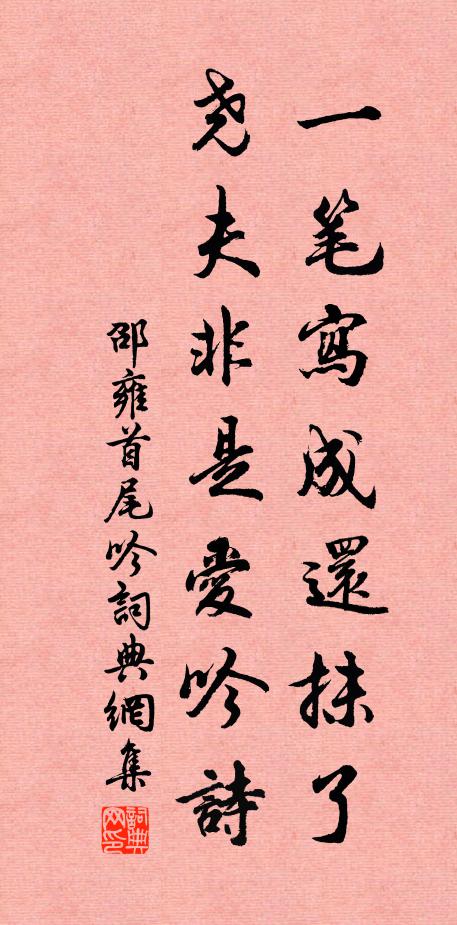 一笔寫成還抹了
尧夫非是愛吟詩
邵雍首尾吟詞典網集
詞典网印